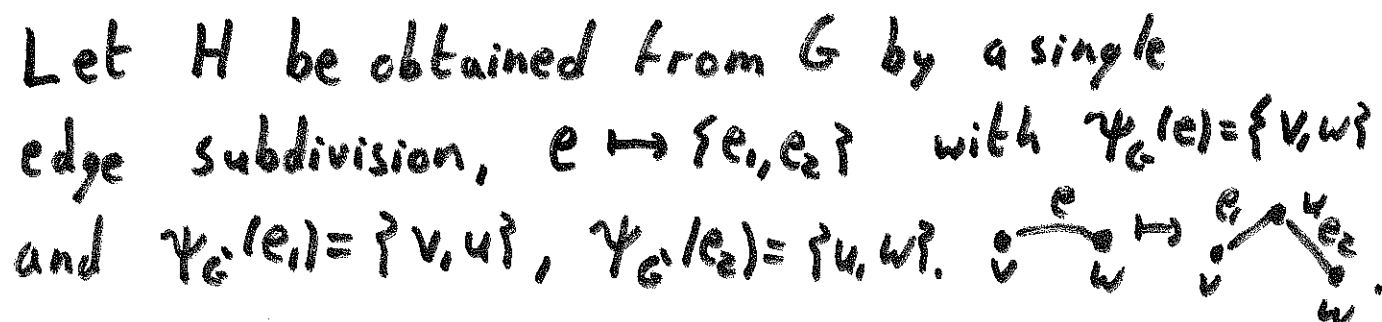 Let H be obtained from G by a single
edge subdivision, e ↦ {e₁,e₂} with ψ_G(e)={v,w}
and ψ_G'(e₁)={v,u}, ψ_G'(e₂)={u,w}. e v w ↦ e₁ u e₂ v w.